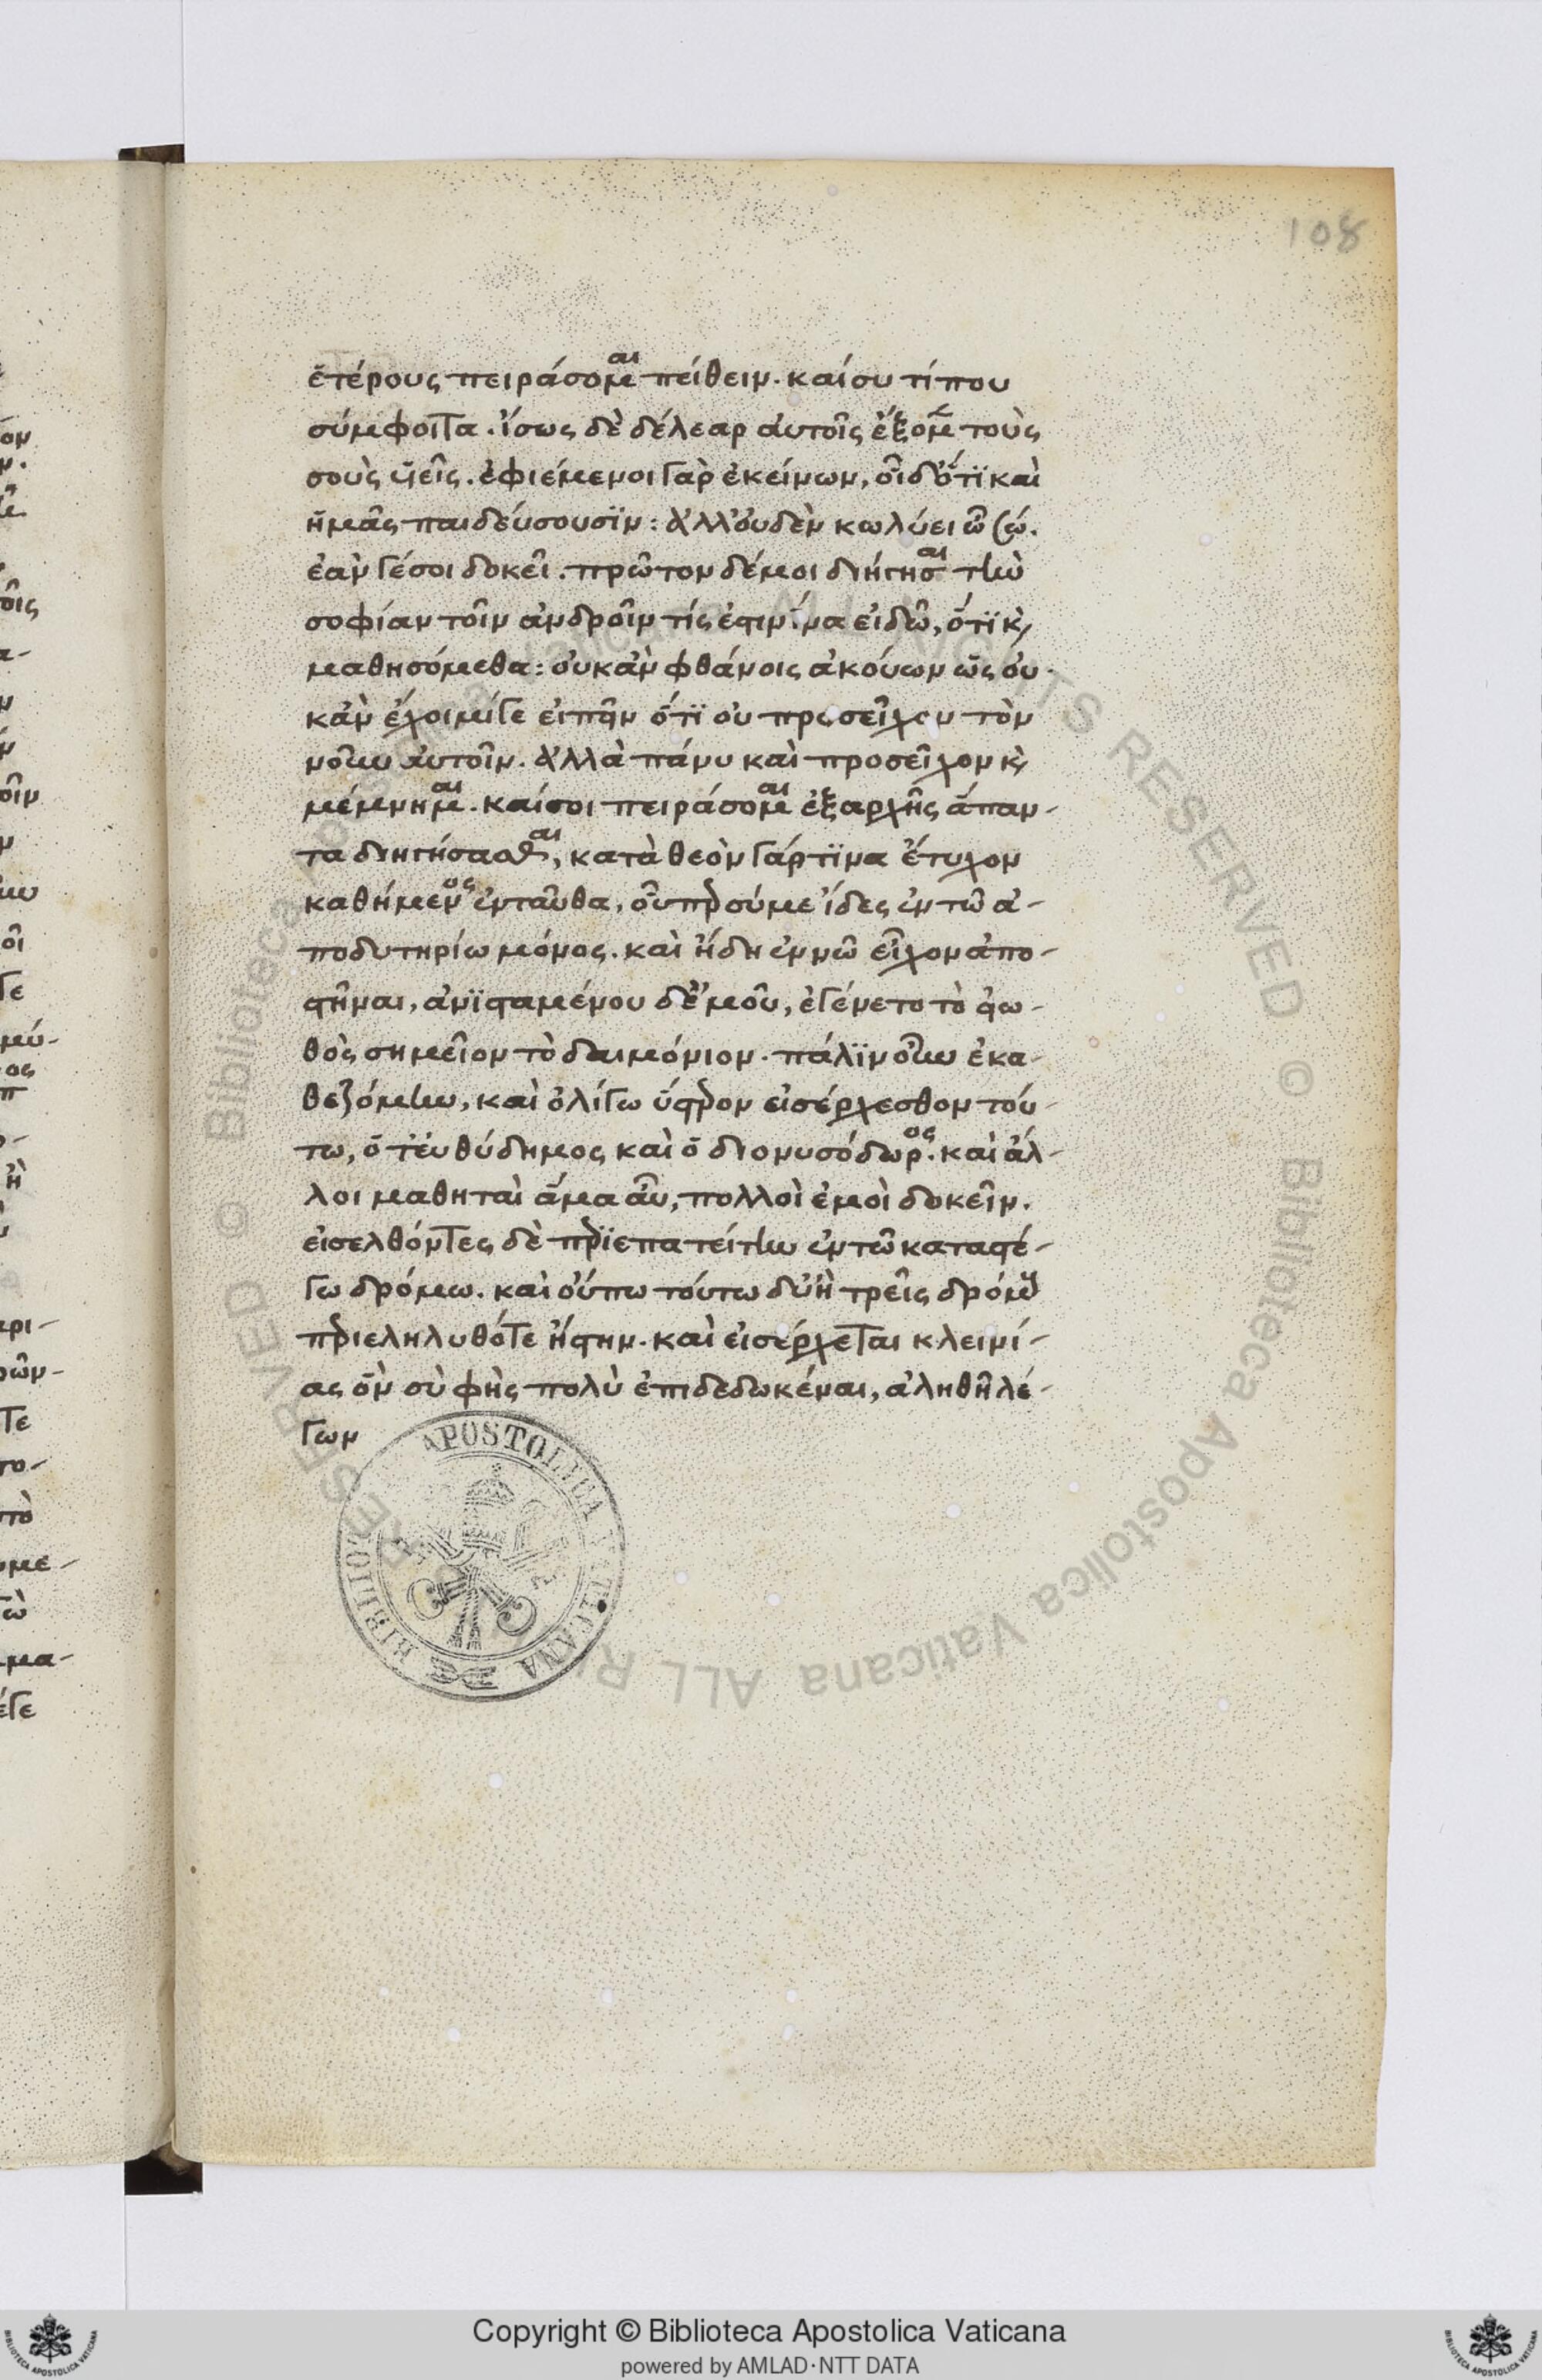 108
ἑτέρους πειράσομαι πείθειν. καί συ τί που
σύμφοιτα. ἴσως δὲ δέλεαρ αὐτοῖς ἕξομεν τοὺς
σοὺς υἱεῖς. ἐφιέμενοι γὰρ ἐκείνων, οἶδ' ὅτϊ καὶ
ἡμᾶς παιδεύσουσϊν: ἀλλ' οὐδὲν κωλύει ὦ σώ.
ἐάν γέ σοι δοκεῖ. πρῶτον δέ μοι διήγησαι τὴν
σοφίαν τοῖν ἀνδροῖν τίς ἐστιν ἵνα εἰδῶ, ὅτϊ καὶ
μαθησόμεθα: οὐκ ἂν φθάνοις ἀκούων ὡς οὐ
κ ἂν ἔχοιμί γε εἰπεῖν ὅτϊ οὐ προσεῖχον τὸν
νοῦν αὐτοῖν. ἀλλὰ πάνυ καὶ προσεῖχον καὶ
μέμνημαι. καί σοι πειράσομαι ἐξαρχῆς ἅπαν-
τα διηγήσασθαι, κατὰ θεὸν γάρ τϊνα ἔτυχον
καθήμενος ἐνταῦθα, οὗπερ σύ με εἶδες ἐν τῶ ἀ-
ποδυτηρίω μόνος. καὶ ἤδη ἐν νῶ εἶχον ἀπο-
στῆναι, ἀνϊσταμένου δέ μου, ἐγένετο τὸ εἰω-
θὸς σημεῖον τὸ δαιμόνιον. πάλϊν οὖν ἐκα-
θεζόμην, καὶ ὀλίγω ὕστερον εἰσέρχεσθον τού-
τω, ὅ τ' εὐθύδημος καὶ ὁ διονυσόδωρος. καὶ ἄλ-
λοι μαθηταὶ ἅμα αὖ, πολλοὶ ἐμοὶ δοκεῖν.
εἰσελθόντες δὲ περϊεπατείτην ἐν τῶ καταστέ-
γω δρόμω. καὶ οὔπω τούτω δύ' ἢ τρεῖς δρόμους
περιεληλυθότε ἤστην. καὶ εἰσέρχεται κλεινί-
ας ὃν σὺ φὴς πολὺ ἐπιδεδωκέναι, ἀληθῆ λέ-
γων
APOSTOLICA VATICANA BIBLIOT
Copyright © Biblioteca Apostolica Vaticana
powered by AMLAD·NTT DATA